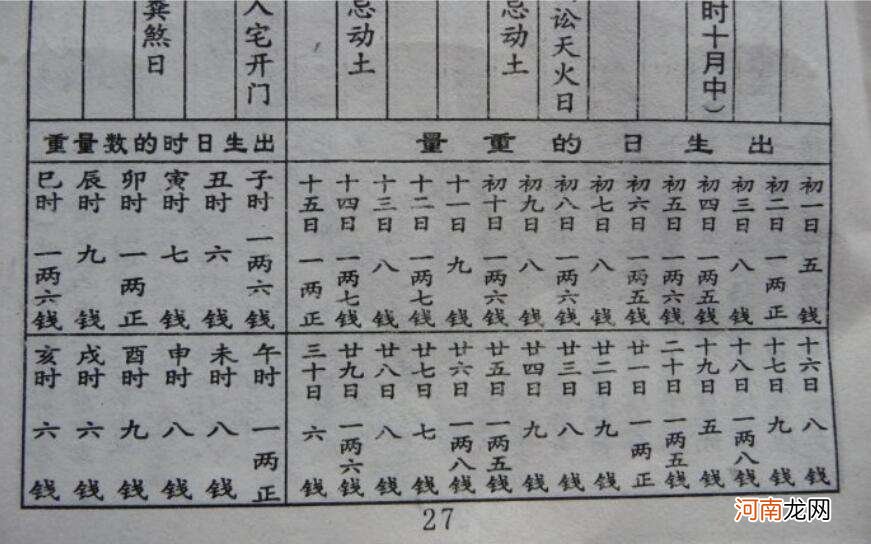 时十月中）
讼天火日
忌动土
忌动土
入宅开门
粪煞日
出生日的重量
初一日 五钱
初二日 一两正
初三日 八钱
初四日 一两五钱
初五日 一两六钱
初六日 一两五钱
初七日 八钱
初八日 一两六钱
初九日 八钱
初十日 一两六钱
十一日 九钱
十二日 一两七钱
十三日 八钱
十四日 一两七钱
十五日 一两正
十六日 八钱
十七日 九钱
十八日 一两八钱
十九日 五钱
二十日 一两五钱
廿一日 一两正
廿二日 九钱
廿三日 八钱
廿四日 九钱
廿五日 一两五钱
廿六日 一两八钱
廿七日 七钱
廿八日 八钱
廿九日 一两六钱
三十日 六钱
出生日时的数量重
子时 一两六钱
丑时 六钱
寅时 七钱
卯时 一两正
辰时 九钱
巳时 一两六钱
午时 一两正
未时 八钱
申时 八钱
酉时 九钱
戌时 六钱
亥时 六钱
27
河南龙网